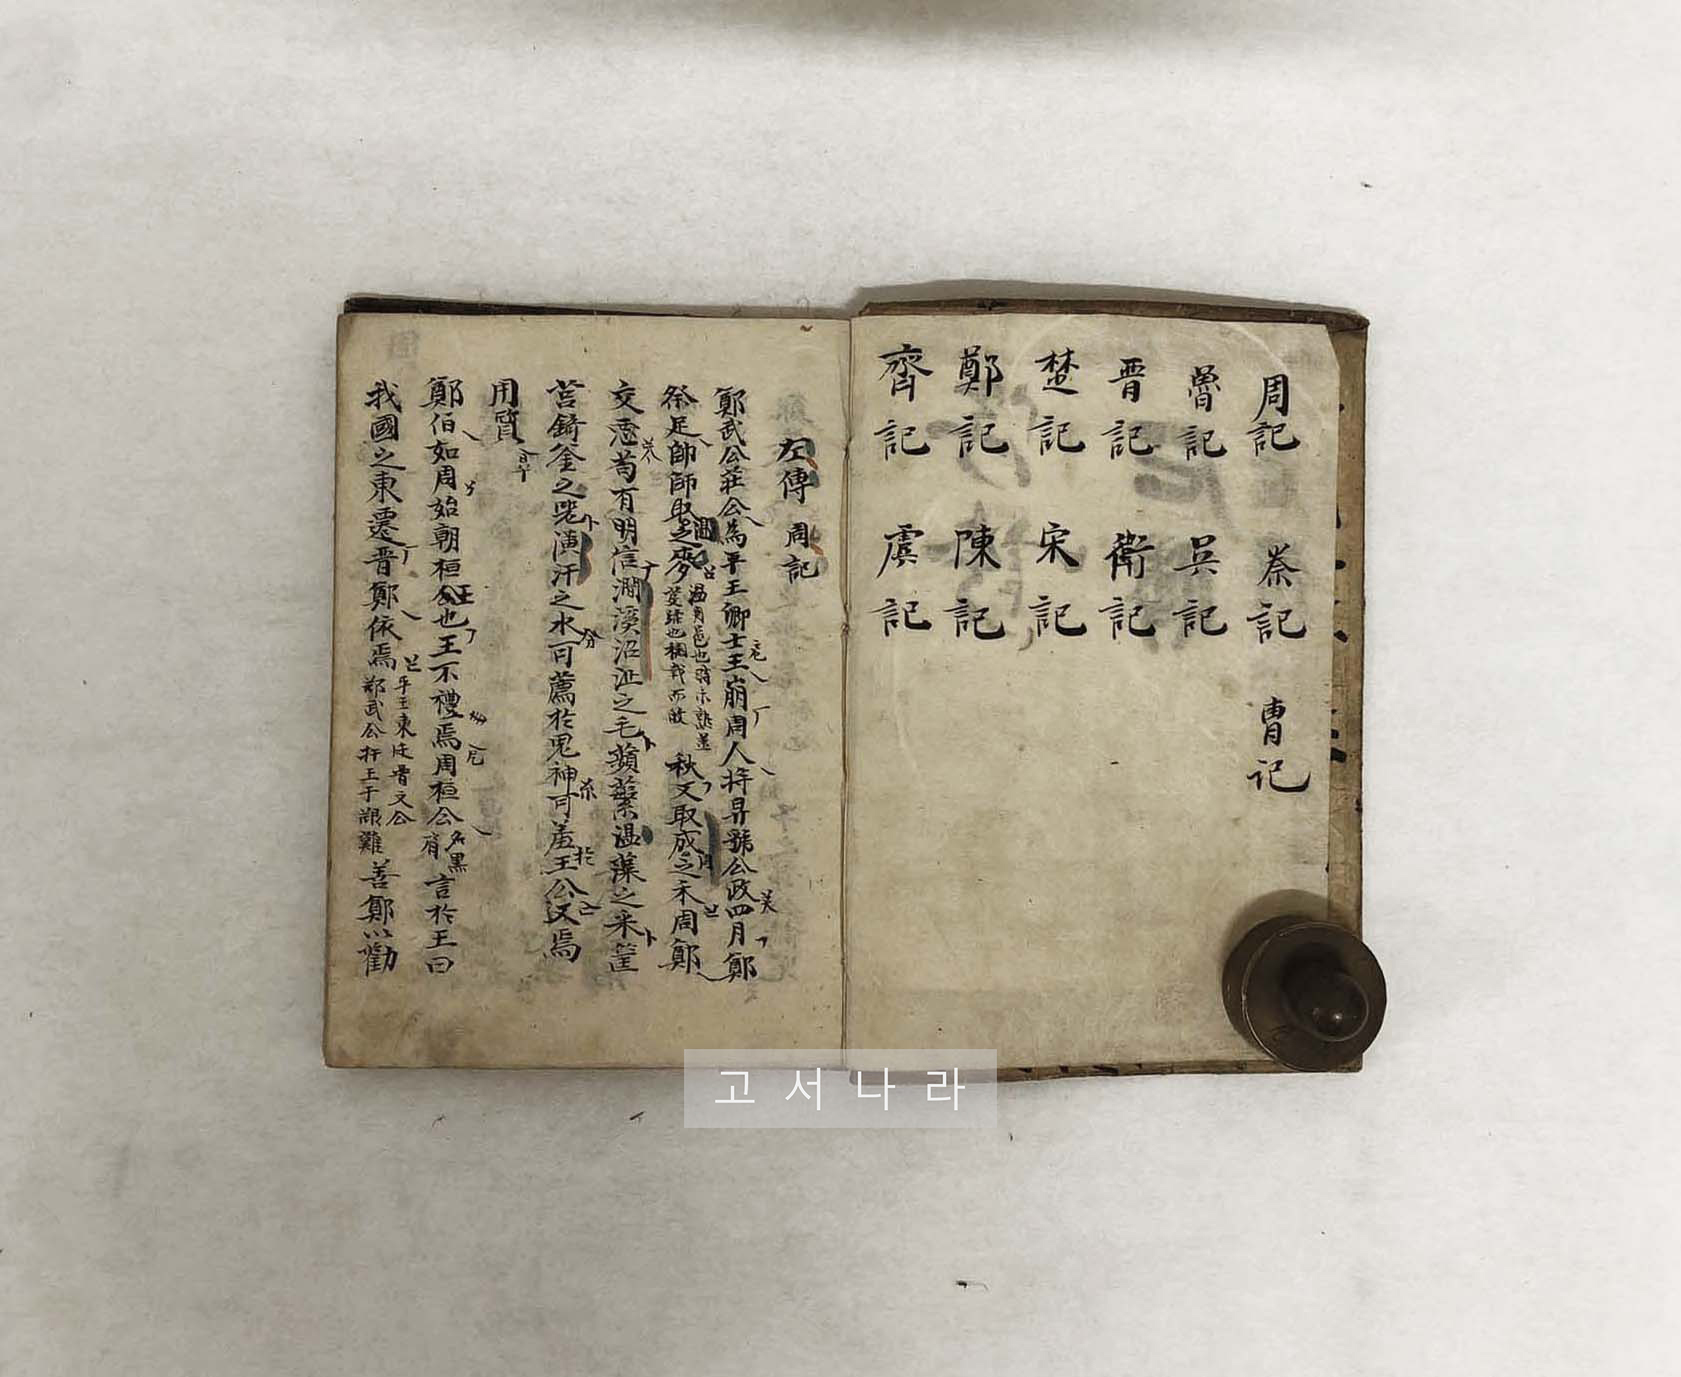 周記 蔡記 曹記
魯記 吳記
晋記 衛記
楚記 宋記
鄭記 陳記
齊記 虞記
左傳 周記
鄭武公莊公為平王卿士王崩周人將畀虢公政四月鄭
祭足帥師取温之麥 温周邑也時未熟盖芟踐也 秋又取成之禾周鄭
交惡苟有明信澗溪沼沚之毛蘋蘩温藻之米筐
筥錡釜之器潢汙之水可薦於鬼神可羞王公又焉
用質
鄭伯如周始朝桓王也王不禮焉周桓公 黑肩 言於王曰
我國之東遷晋鄭依焉 平王東迁晋文公鄭武公扞王于艱難 善鄭以勸
고서나라